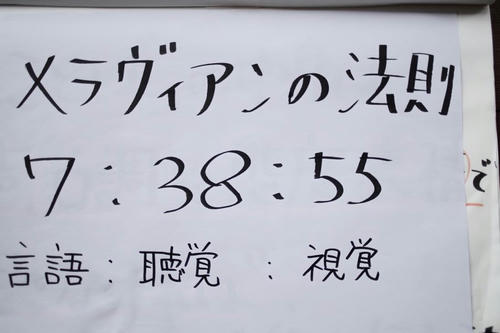 メラヴィアンの法則
7:38:55
言語:聴覚:視覚
で